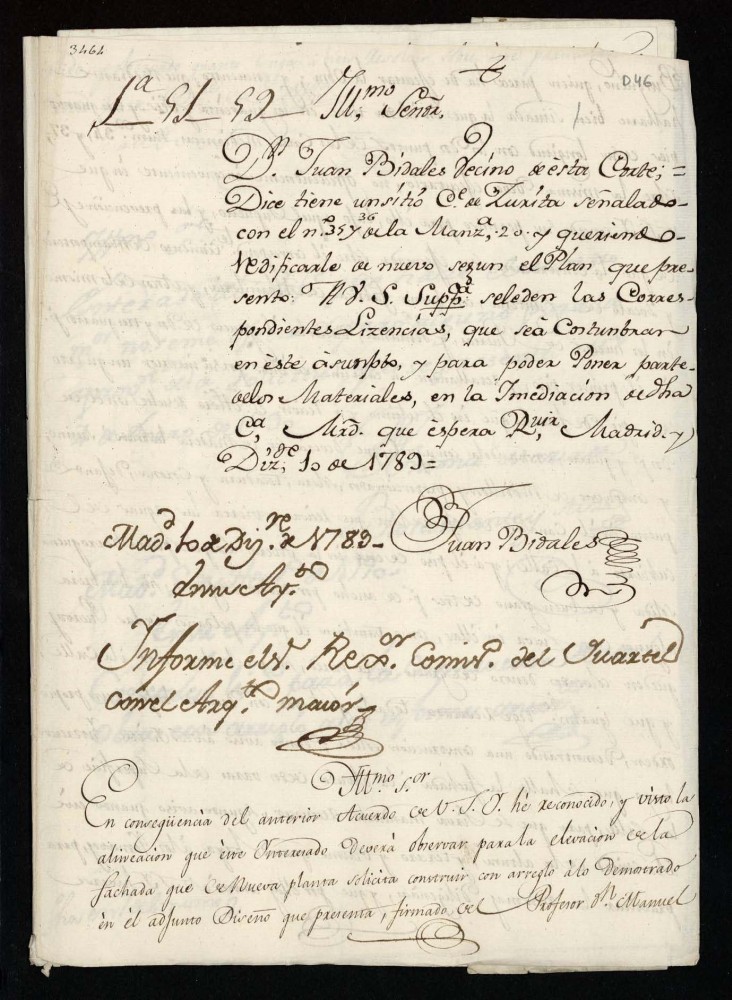 3464
D46
1ª 51 52 Ill.mo Señor,
D.n Juan Bidales Vecino de èsta Corte; =
Dice tiene un sitio C.e de Zurita señalado
con el n.º 35 y 36 de la Manz.a, 20. y queriendo
redificarle de nuevo segun el Plan que pre-
sento: A V. S. Supp.ca seleden las Corres-
pondientes Lizencias, que seà Costunbran
en èste àsunpto, y para poder Poner parte
delos Materiales, en la Imediacion de dha
C.a, Mrd. que èspera Rivir, Madrid. y
Diz.re, 10 de 1789=
Juan Bidales
Mad.d 10 de Diz.re de 1789-
en su Ay.to
Informe el S.r Rex.or Comis.o del Quartel
con el Arq.to maior
Ill.mo S.or
En conseqüencia del anterior Acuerdo de V. S. I. hé reconocido, y visto la
alineacion que èste Interesado Deverà observar para la elevacion de la
fachada que de Nueva planta solicita construir con arreglo à lo demostrado
èn èl adjunto Diseño que presenta, firmado del Profesor D.n Manuel